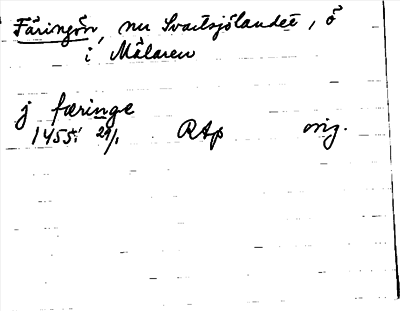 Färingön, nu Svartsjölandet, ö
i Mälaren
j færinge
1455 29/1 RAp orig.